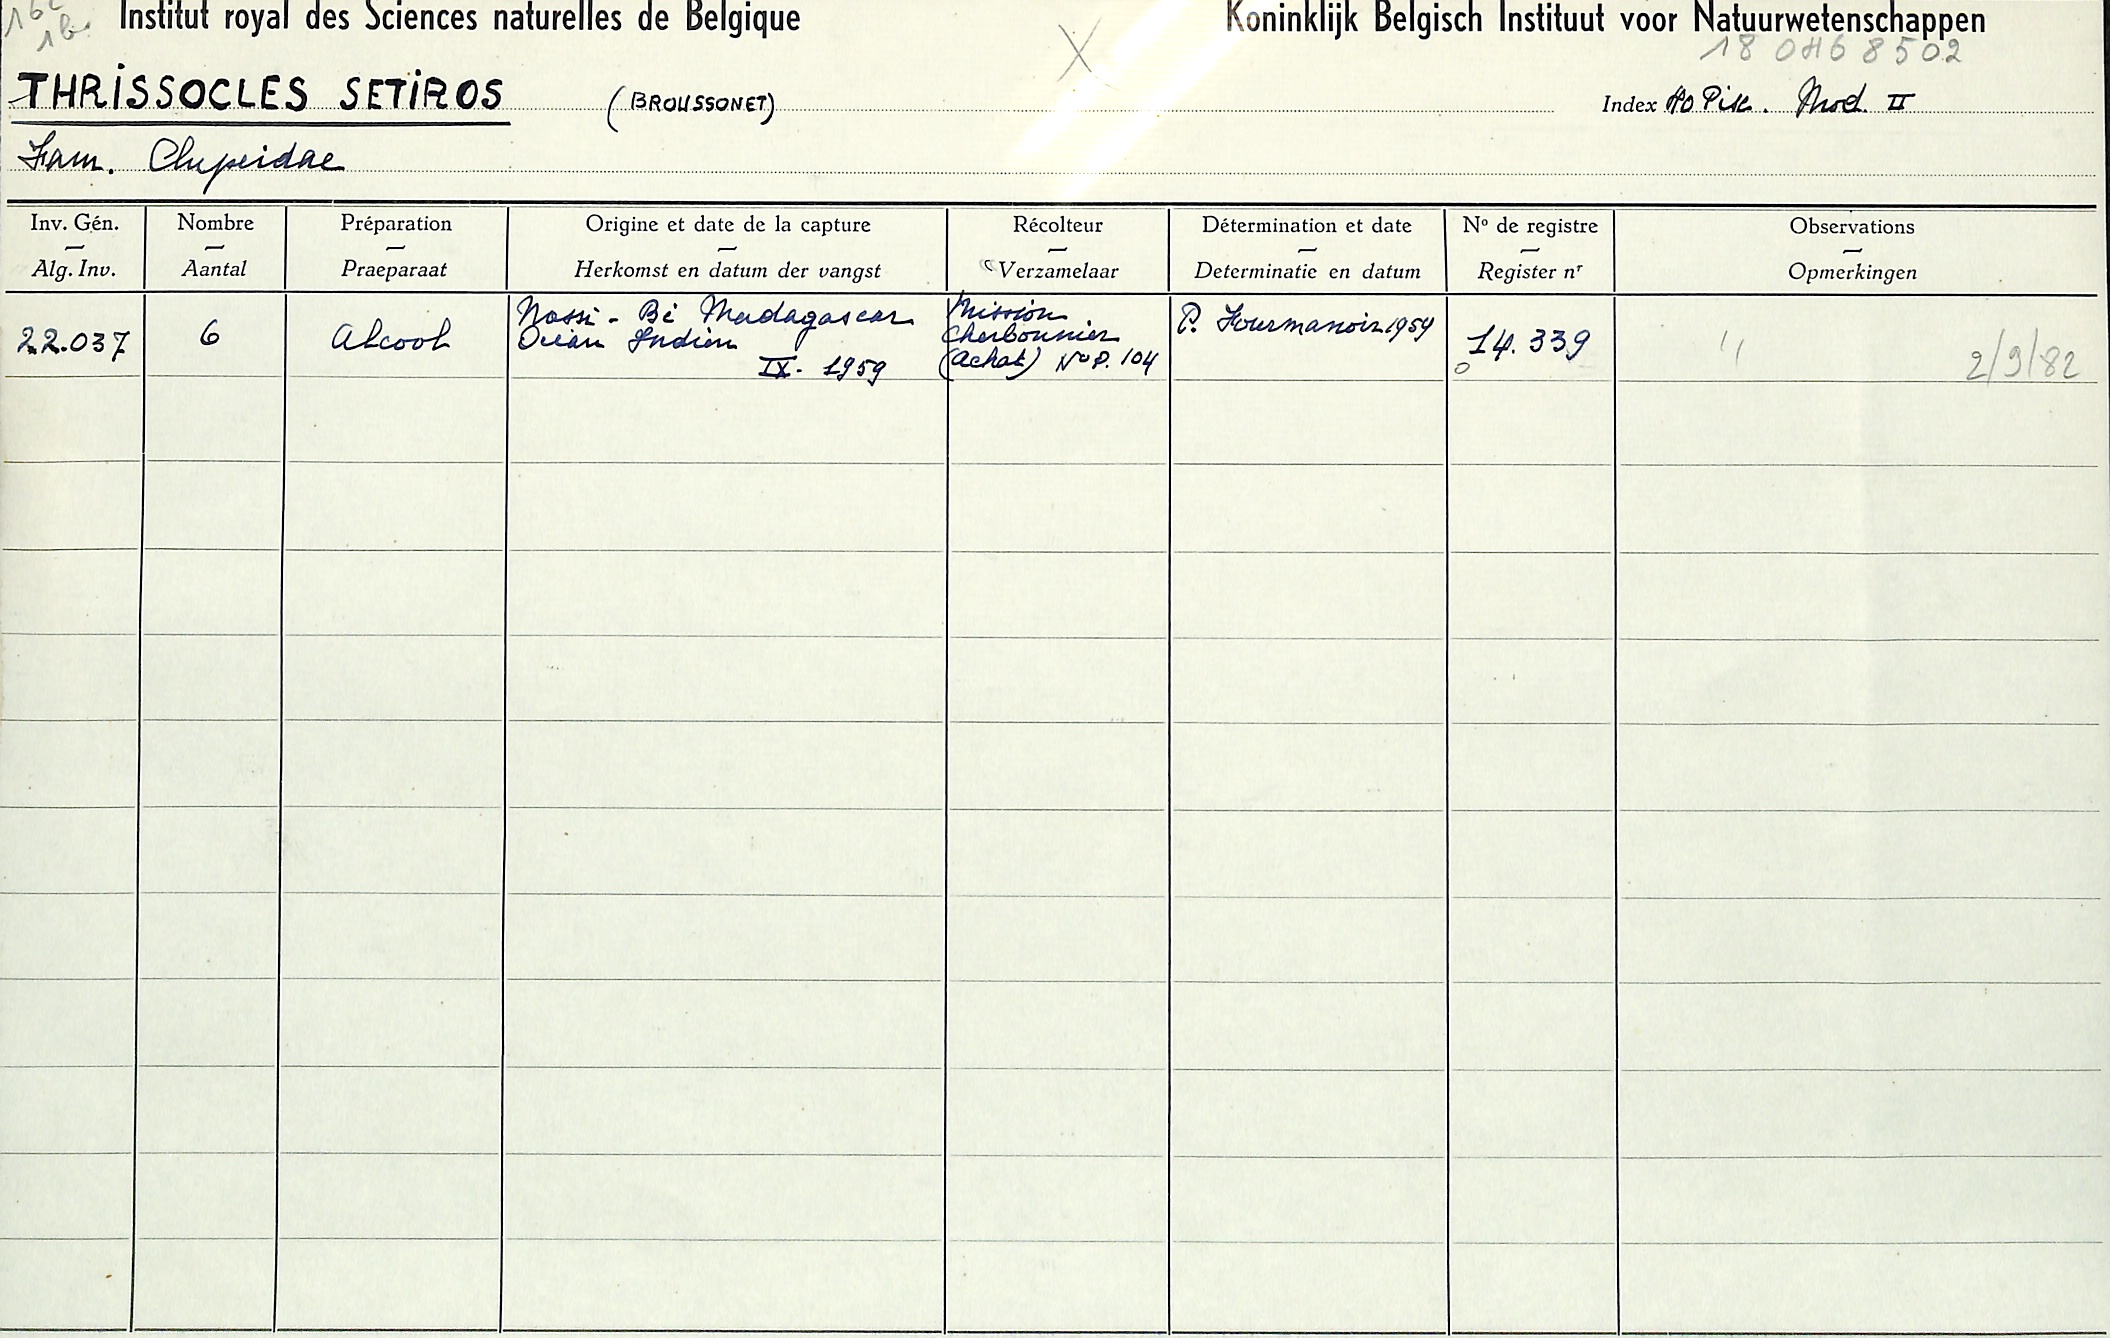 Institut royal des Sciences naturelles de Belgique
Koninklijk Belgisch Instituut voor Natuurwetenschappen
THRISSOCLES SETIROS (BROUSSONET)
Index 40 Pisc. Mod. II
Fam. Clupeidae
Inv. Gén. Nombre Préparation Origine et date de la capture Récolteur Détermination et date Nº de registre Observations
Alg. Inv. Aantal Praeparaat Herkomst en datum der vangst Verzamelaar Determinatie en datum Register nr Opmerkingen
22.037
6
Alcool
Nossi-Bé Madagascar
Océan Indien
IX. 1959
Mission
Cherbonnier
(achat) Nº P. 104
P. Fourmanoir 1959
14.339
2/9/82